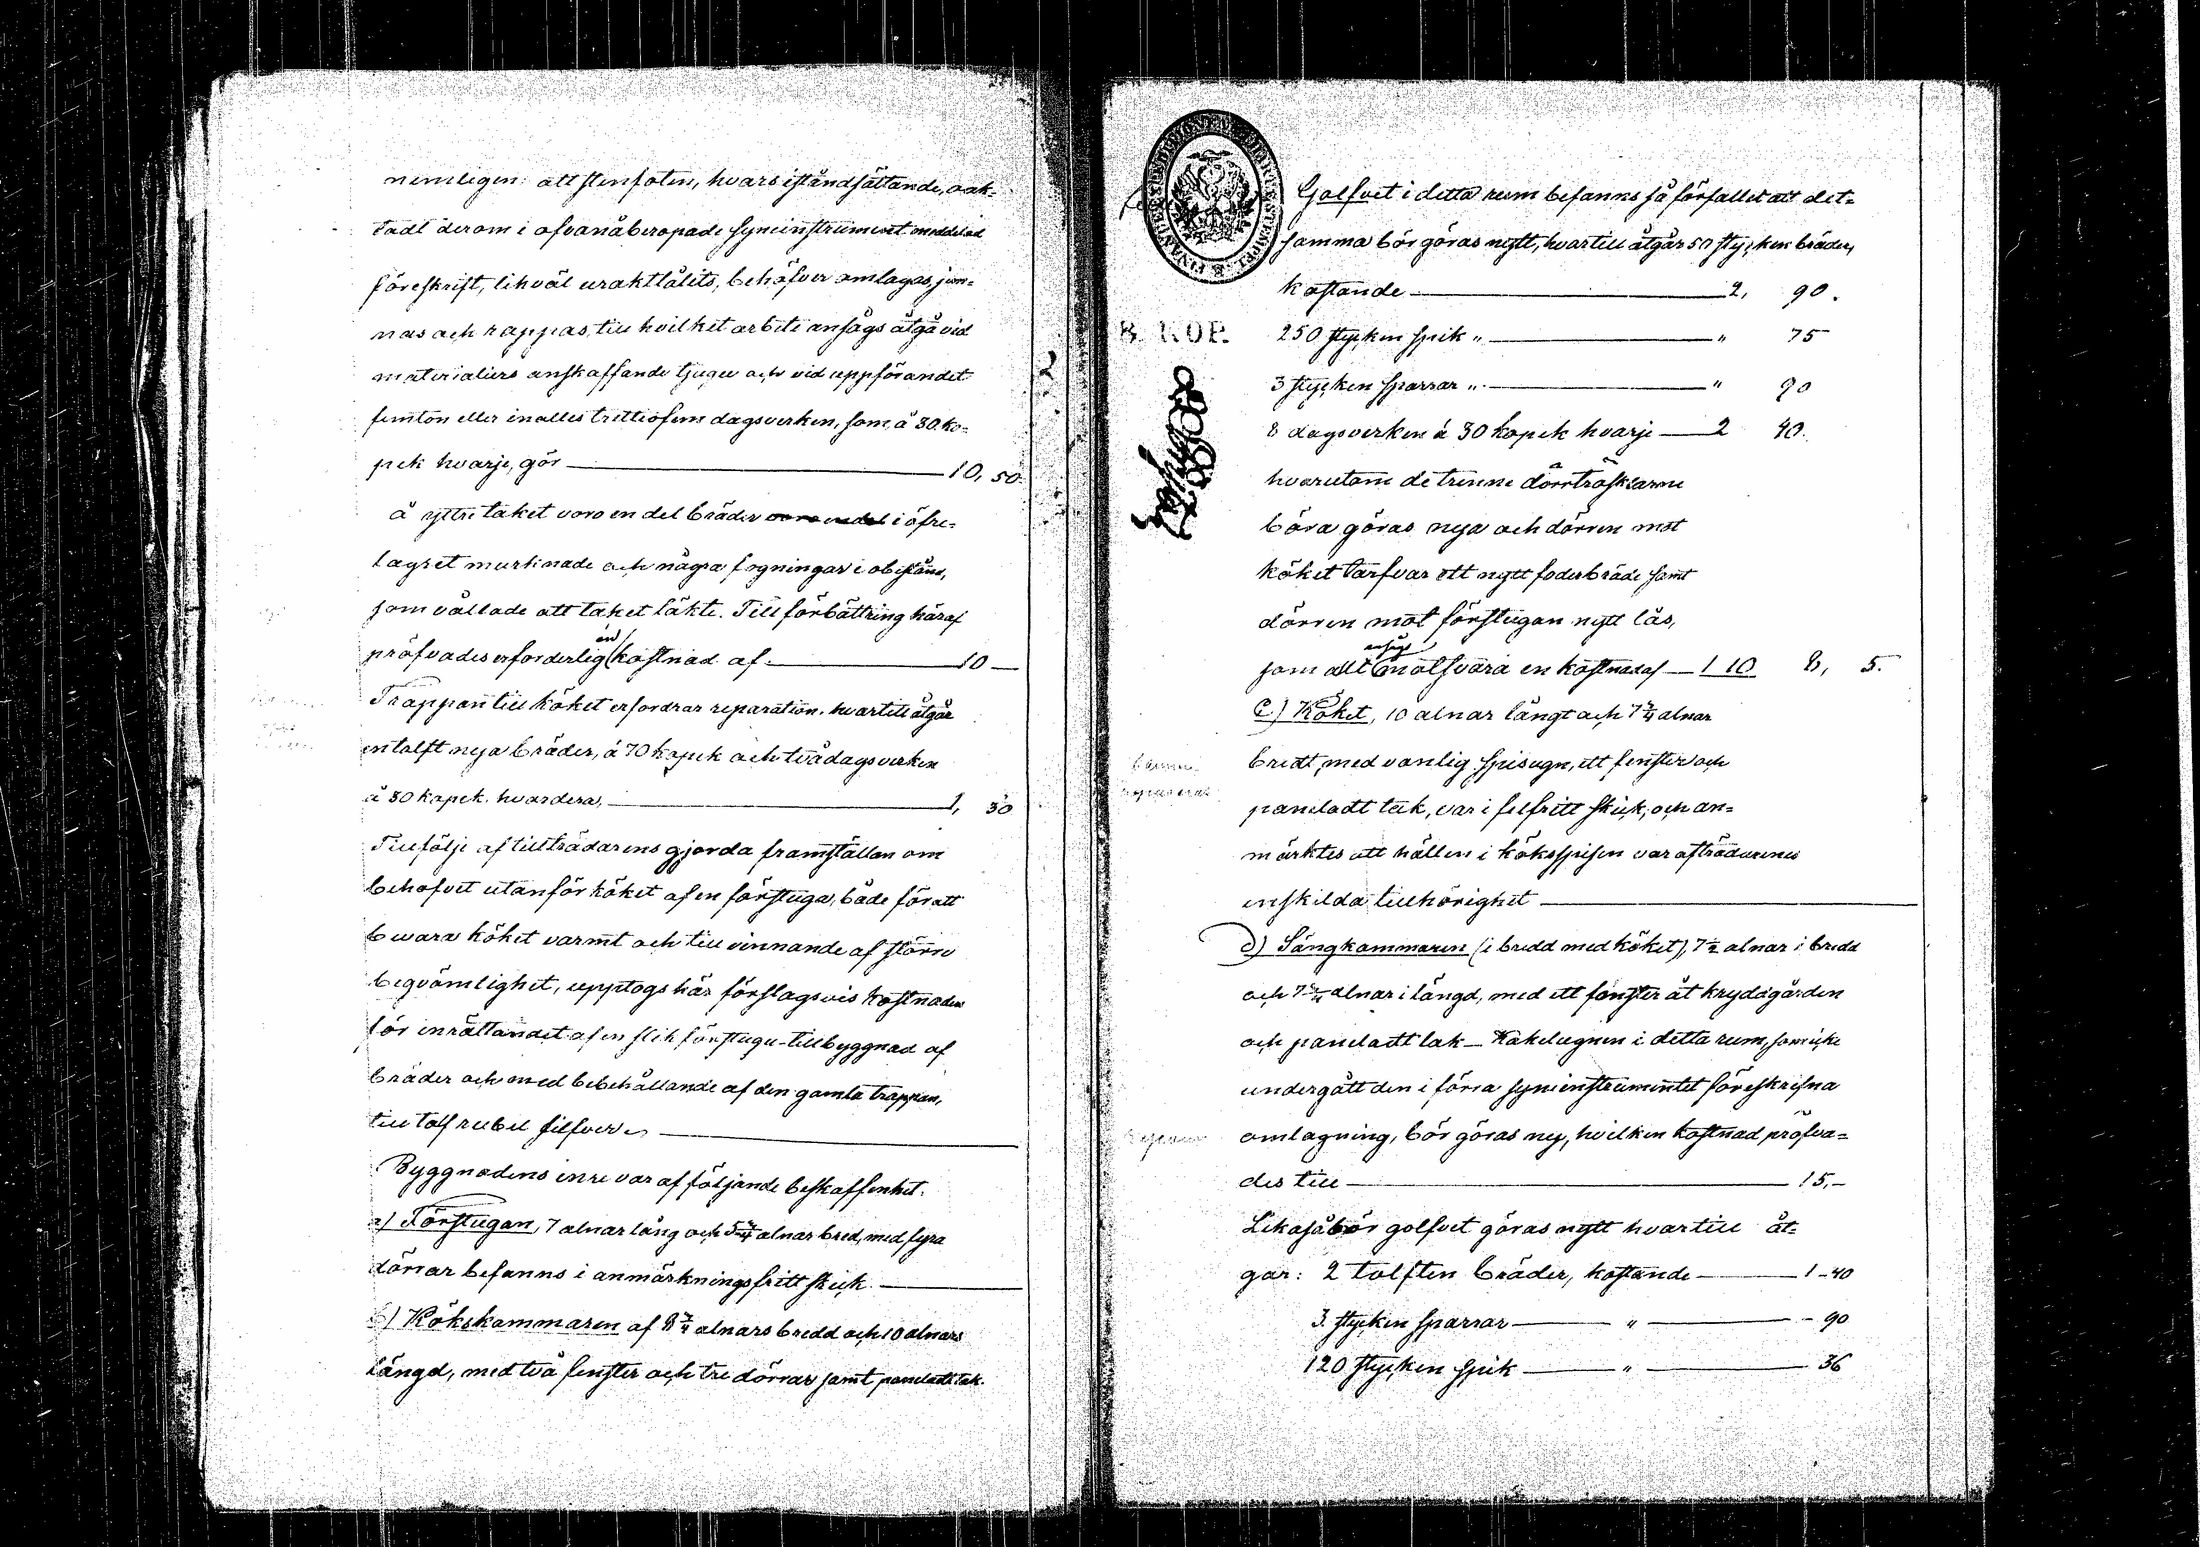 nemligen: att stenfoten, hvars iståndsättande, oak-
tadt derom i ofvanåberopade syneinstrument meddelad
föreskrift, likväl uraktlåtits, behöfver omlagas, jem-
nas och rappas, till hvilket arbete ansågs åtgå vid
materialiers anskaffande tjugu och vid uppförandet
femton eller inalles trettiofem dagsverken, som, á 30 ko-
pek hvarje, gör 10, 50.
å yttre taket voro en del bräder i öfre-
lagret murknade och några fogningar i obestånd,
som vållade att taket läkte. Till förbättring häraf
pröfvades erforderlig en kostnad af 10 —
Trappan till köket erfordrar reparation, hvartill åtgår
en tolft nya bräder, á 70 kopek och två dagsverken
á 30 kopek hvardera, 1, 30
Tillfölje af tillträdarens gjorda framställan om
behofvet utanför köket af en förstuga, både för att
bevara köket varmt och till vinnande af större
beqvämlighet, upptogs här förslagsvis kostnaden
för inrättandet af en slik förstugu-tillbyggnad af
bräder och med bibehållande af den gamla trappan,
till tolf rubel silfver
Byggnadens inre var af följande beskaffenhet.
a) Förstugan, 7 alnar lång och 5 3/4 alnar bred, med fyra
dörrar befanns i anmärkningsfritt skick.
b) Kökskammaren af 8 3/4 alnars bredd och 10 alnars
längd, med två fenster och tre dörrar samt paneladt tak.
2
Golfvet i detta rum befanns så förfallet att det-
samma bör göras nytt, hvartill åtgår 50 stycken bräder,
kostande 2, 90.
8 KOP.
250 stycken spik " " 75
3 stycken sparrar " " 90
8 dagsverken á 30 kopek hvarje 2 40.
hvarutom de trenne dörrtrösklarne
böra göras nya och dörren mot
köket tarfvar ett nytt foderbräde samt
dörren mot förstugan nytt lås,
som allt ansågs motsvara en kostnad af 1 10 8, 5.
c) Köket, 10 alnar långt och 7 3/4 alnar
bredt, med vanlig spisugn, ett fenster och
paneladt tak, var i felfritt skick, och an-
märktes att hällen i köksspisen var afträdarenes
enskilda tillhörighet
d) Sängkammaren (i bredd med köket), 7 1/2 alnar i bredd
och 7 3/4 alnar i längd, med ett fenster åt krydgården
och paneladt tak — Kakelugnen i detta rum, som icke
undergått den i förra syneinstrumentet föreskrifna
omlagning, bör göras ny, hvilken kostnad pröfva-
des till 15, —
Likaså bör golfvet göras nytt hvartill åt-
går: 2 tolften bräder, kostande 1 - 40
3 stycken sparrar " - 90
120 stycken spik " 36